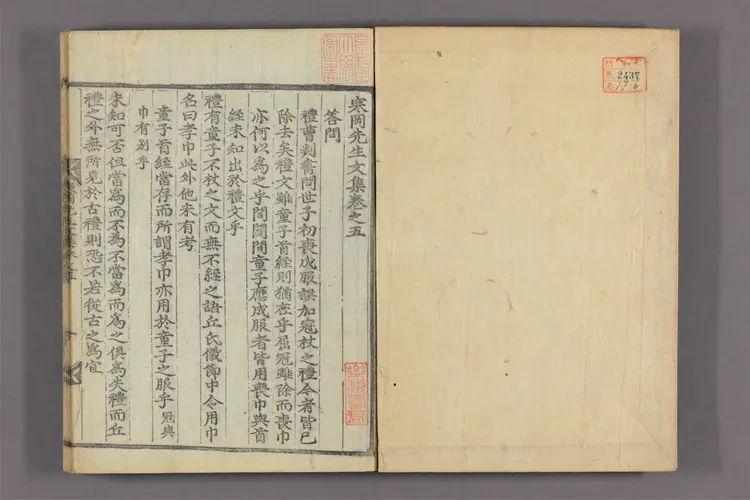 寒岡先生文集卷之五
答問
禮曹判書問世子初喪成服誤加冠杖之禮令者皆已
除去矣禮文雖童子首絰則猶在乎屈冠雖除而喪巾
亦何以爲之乎閭閻間童子應成服者皆用喪巾與首
絰未知出於禮文乎
禮有童子不杖之文而無不絰之語丘氏儀節中令用巾
名曰孝巾此外他未有考
童子首絰當存而所謂孝巾亦用於童子之服乎冠與
巾有別乎
未知可否但當爲而不爲不當爲而爲之俱爲失禮而丘
禮之外無所見於古禮則恐不若從古之爲宜
2437
17-6